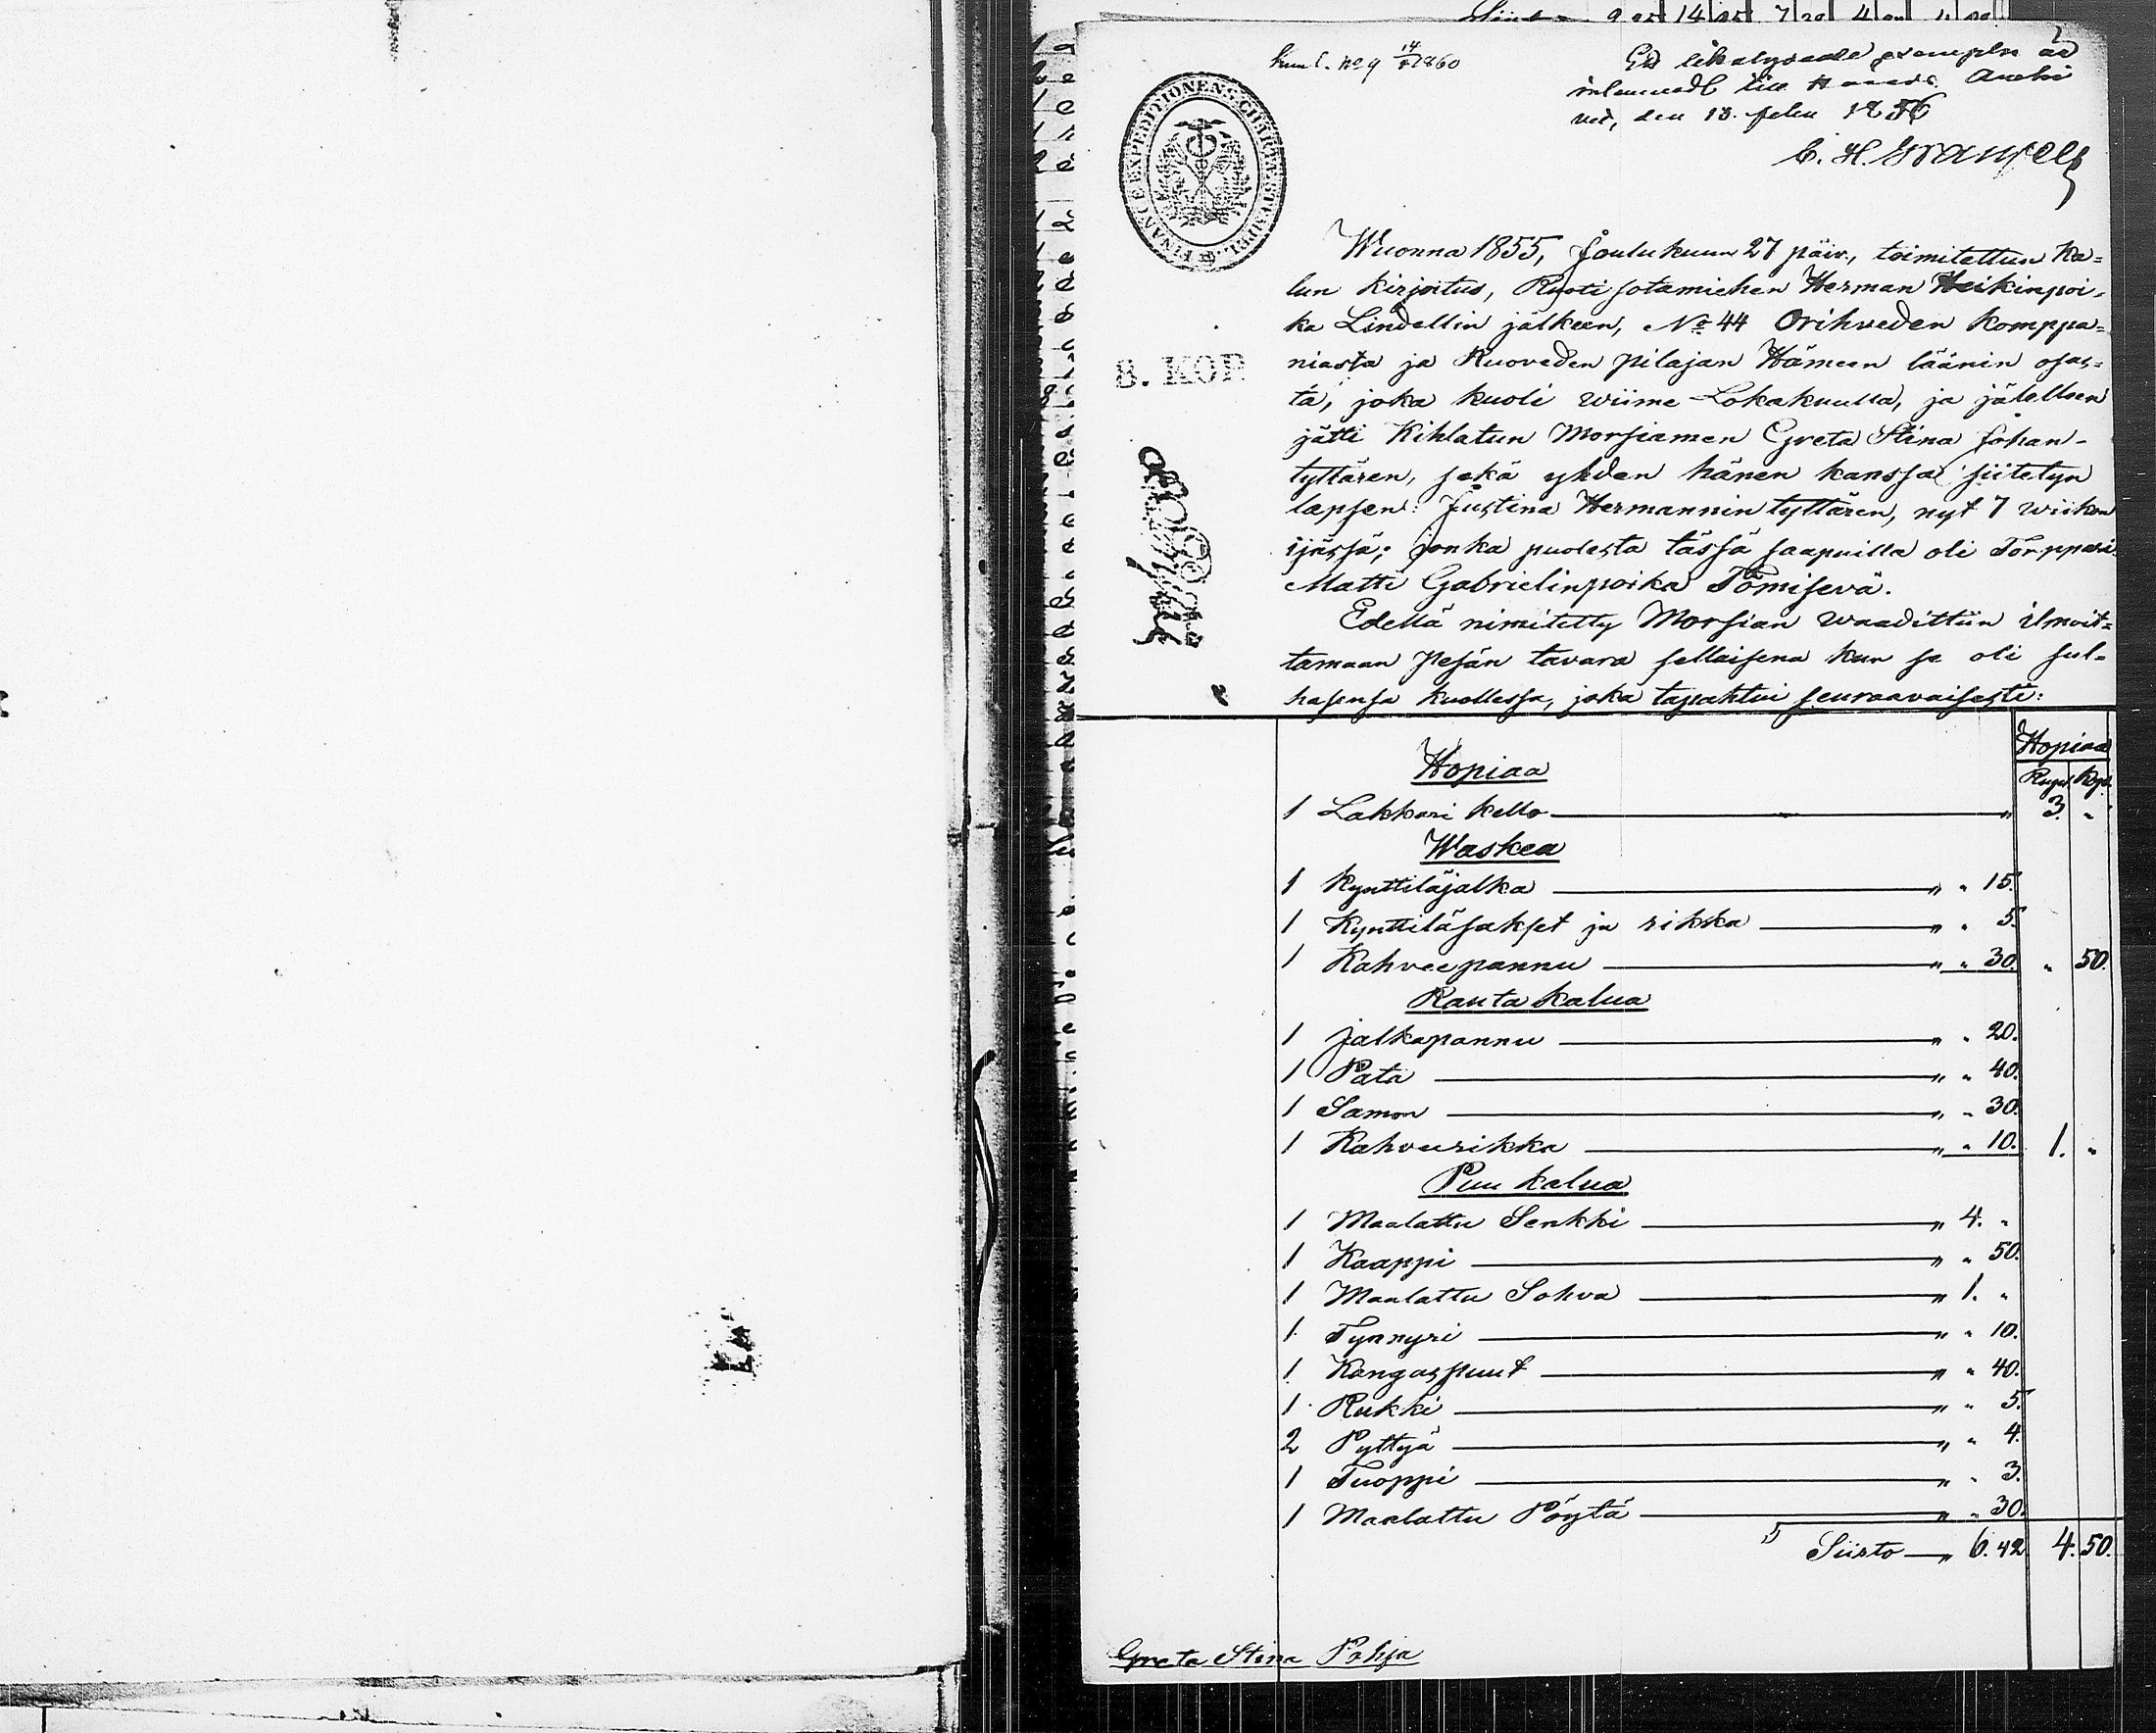 kuul. No 9 14/5 1860
Ett likalydande exemplar är
inlemnadt till Härads Archi
vet, den 18. febru 1856
C. H. Granfelt
FINANCE EXPEDITIONENS CHARTÆ STÄMPEL
8. KOP.
Wuonna 1855, Joulukuun 27 päiv., toimitettiin Ka=
lun kirjoitus, Ruotisotamiehen Herman Heikinpoi=
ka Lindellin jälkeen, No 44 Orihveden komppa=
niasta ja Ruoveden pitäjän Hämeen läänin osas=
ta, joka kuoli wiime Lokakuulla, ja jälelleen
jätti Kihlatun Morsiamen Greta Stina Johan-
tyttären, sekä yhden hänen kanssa siitetyn
lapsen: Justina Hermannin tyttären, nyt 7 wiikon
ijässä; jonka puolesta tässä saapuilla oli Torppari
Matti Gabrielinpoika Tömisevä.
Edellä nimitetty Morsian waadittiin ilmoit=
tamaan Pesän tavara sellaisena kun se oli sul=
hasensa kuollessa, joka tapahtui seuraavaisesti:
Hopiaa
Rupl. Kop.
Hopiaa
1 Lakkari kello " 3. "
Waskea
1 Kynttiläjalka " " 15.
1 Kynttiläsakset ja rikka " " 5.
1 Kahveepannu " " 30. " 50.
Rauta kalua
1 Jalkapannu " " 20.
1 Pata " " 40.
1 Samon " " 30.
1 Kahveerikka " " 10. 1. "
Puu kalua
1 Maalattu Senkki " 4. "
1 Kaappi " " 50.
1 Maalattu Sohva " 1. "
1 Tynnyri " " 10.
1 Kangaspuut " " 40.
1 Rukki " " 5.
2 Pyttyä " " 4.
1 Tuoppi " " 3.
1 Maalattu Pöytä " " 30.
Siirto " 6. 42 4. 50.
Greta Stina Pohja